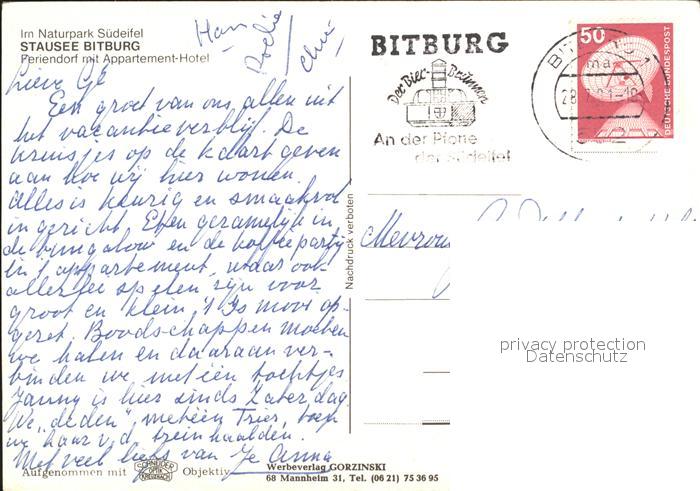 Im Naturpark Südeifel
STAUSEE BITBURG
Feriendorf mit Appartement-Hotel
Lieve
Een groet van ons allen uit
het vacantieverblijf. De
kruisjes op de kaart geven
aan hoe wij hier wonen.
Alles is keurig en smaakvol
ingericht. Eten gezamenlijk in
de bungalow en de koffiepartij
in 't appartement, waar ook
allerlei spelen zijn voor
groot en klein. 't Is mooi op-
gezet. Boodschappen moeten
we halen en daaraan ver-
binden we meteen tochtjes
Janny is hier sinds Zaterdag
We "deden" meteen Trier, toen
we haar v.d. trein haalden.
Met veel liefs van Je Anna
Aufgenommen mit SCHNEIDER OPTIK KREUZNACH Objektiv
Werbeverlag GORZINSKI
68 Mannheim 31, Tel. (06 21) 75 36 95
Nachdruck verboten
BITBURG
Der Bier-Brunnen
An der Pforte
der Südeifel
50
DEUTSCHE BUNDESPOST
ma
Mevrouw
privacy protection
Datenschutz